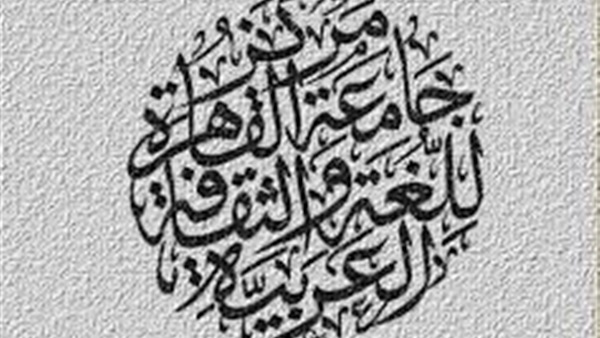 مركز
جامعة القاهرة
للغة والثقافة
العربية